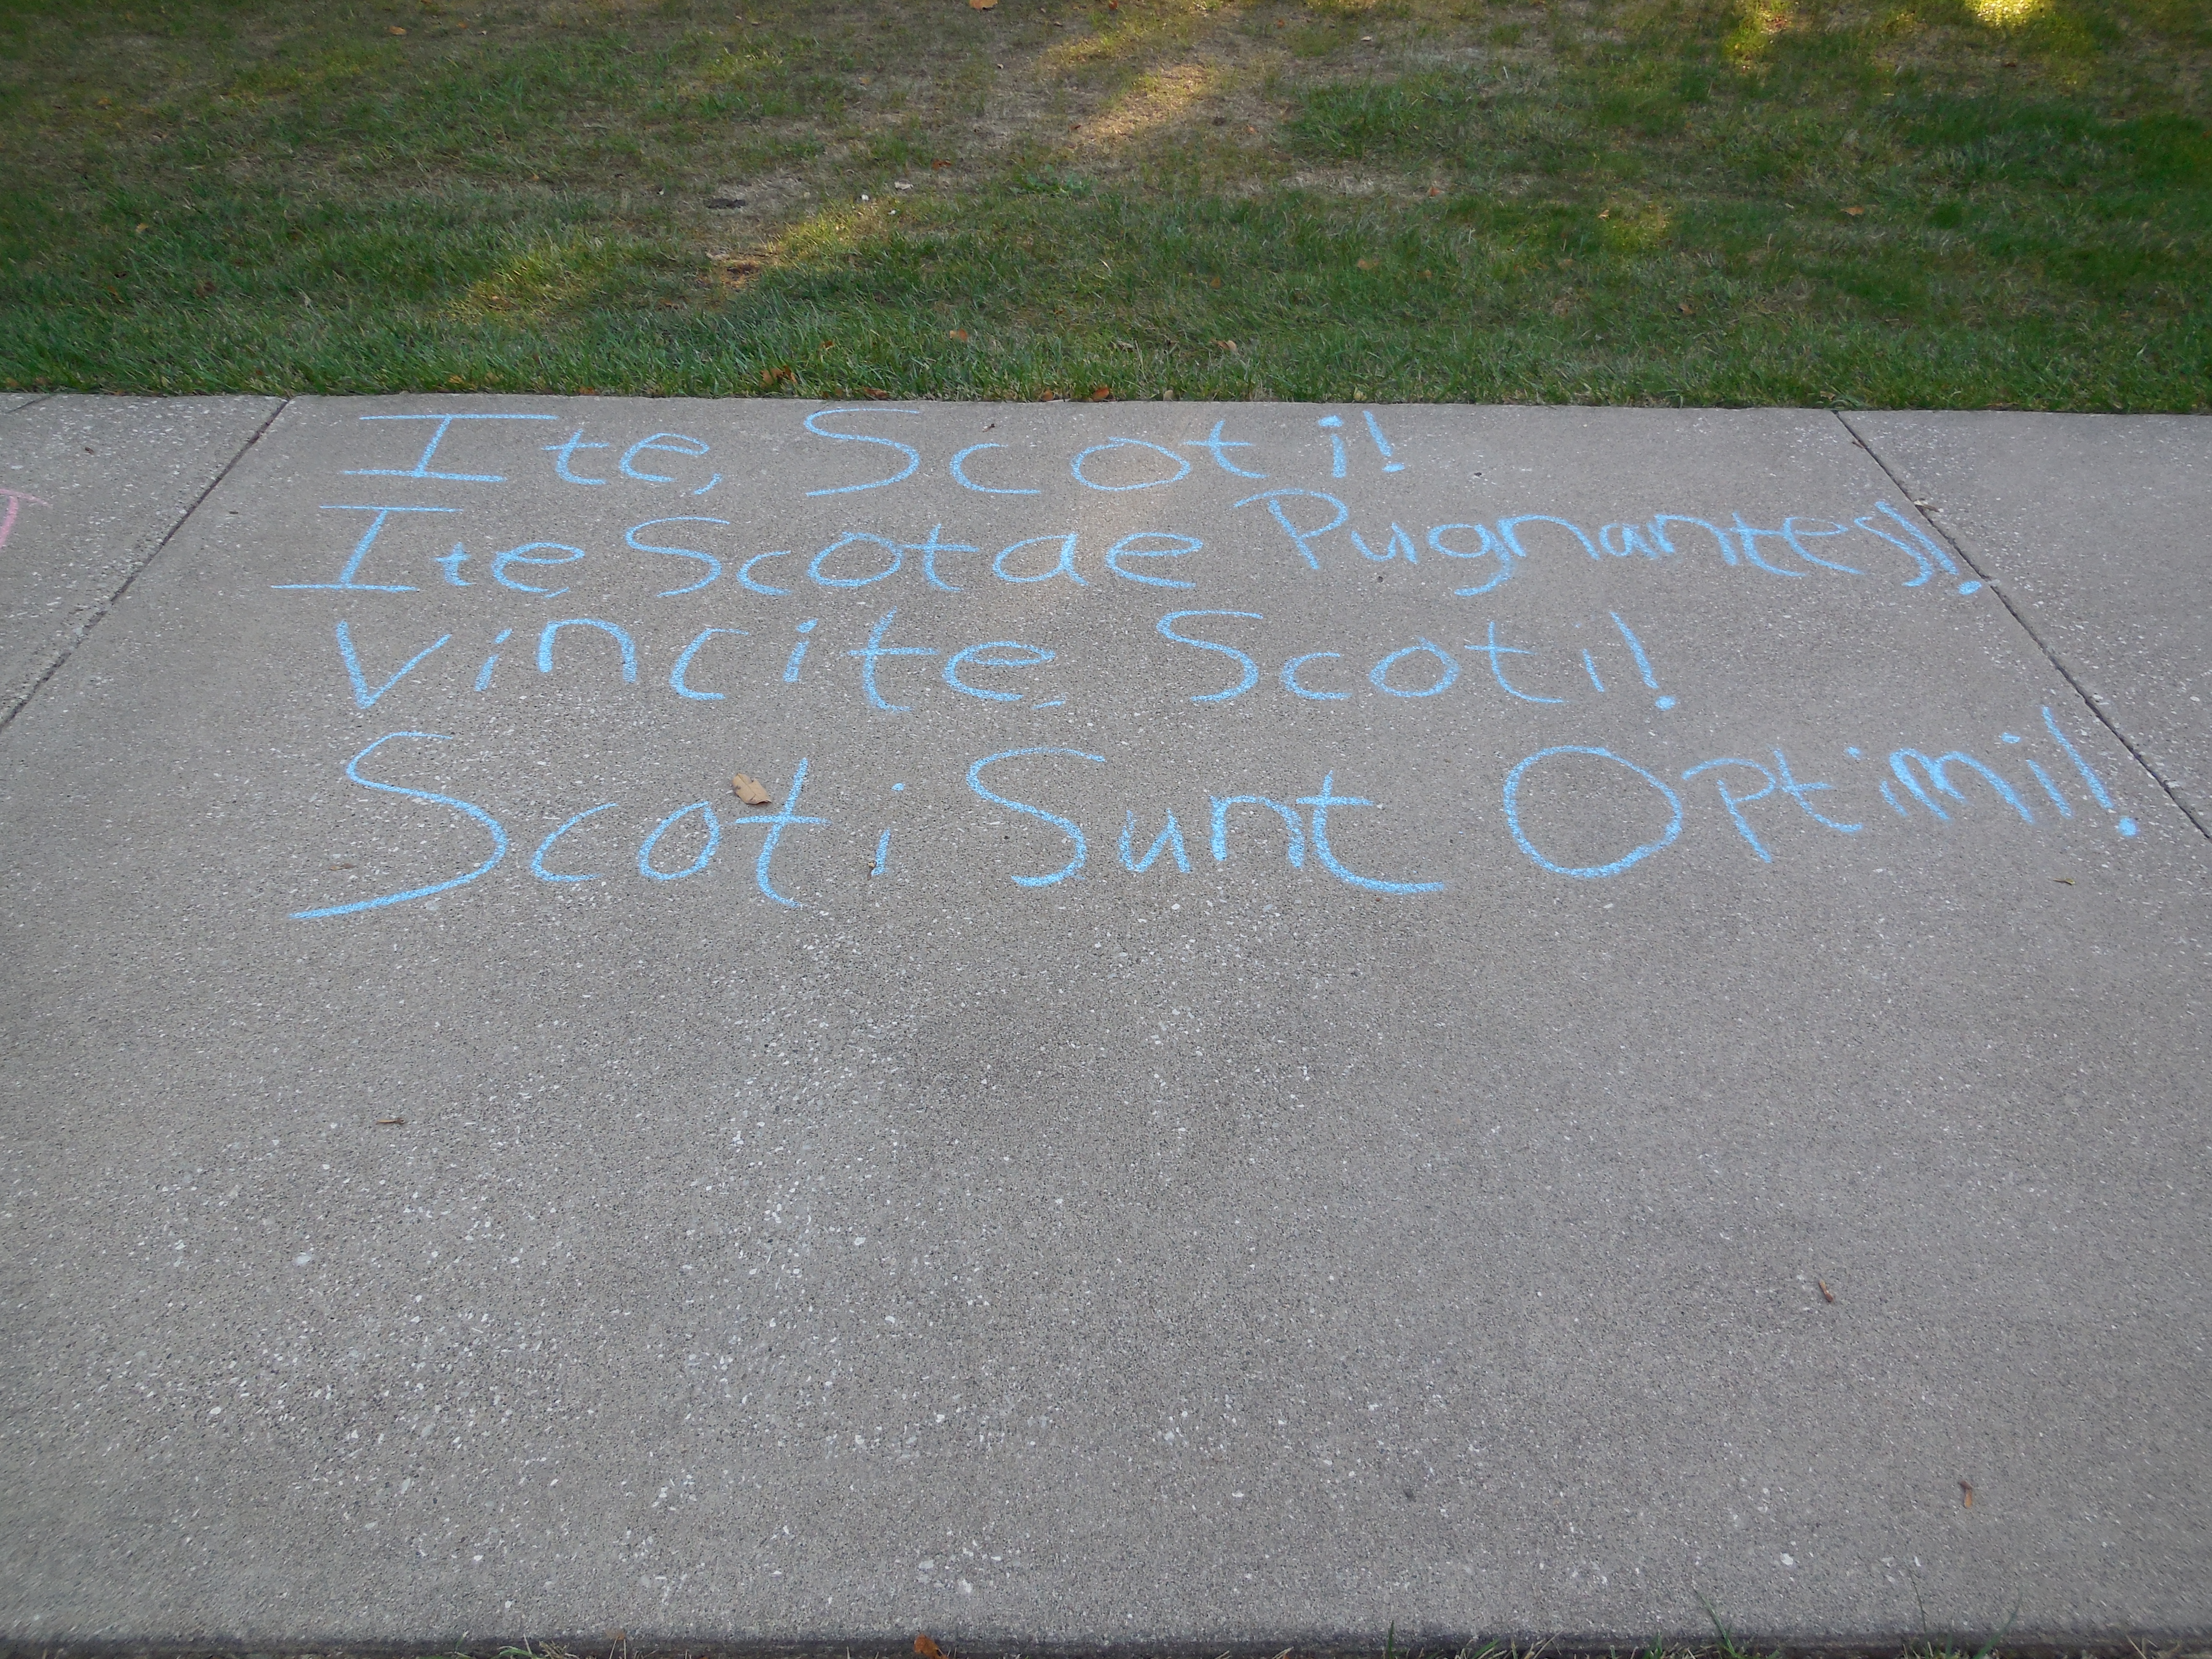 Ite, Scoti!
Ite, Scotae Pugnantes!
Vincite, Scoti!
Scoti Sunt Optimi!